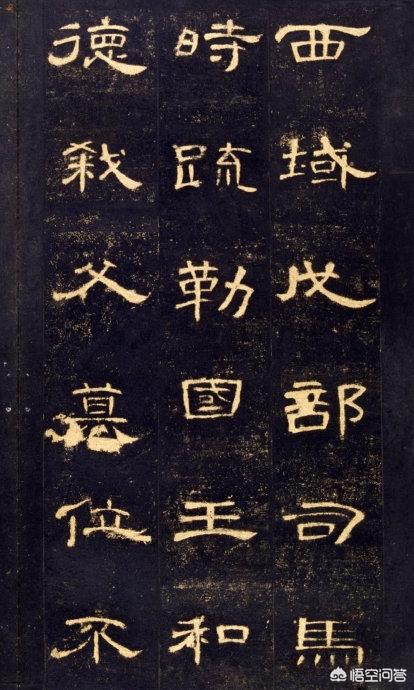 西域戊部司馬
時疏勒國王和
德弒父篡位不
悟空问答